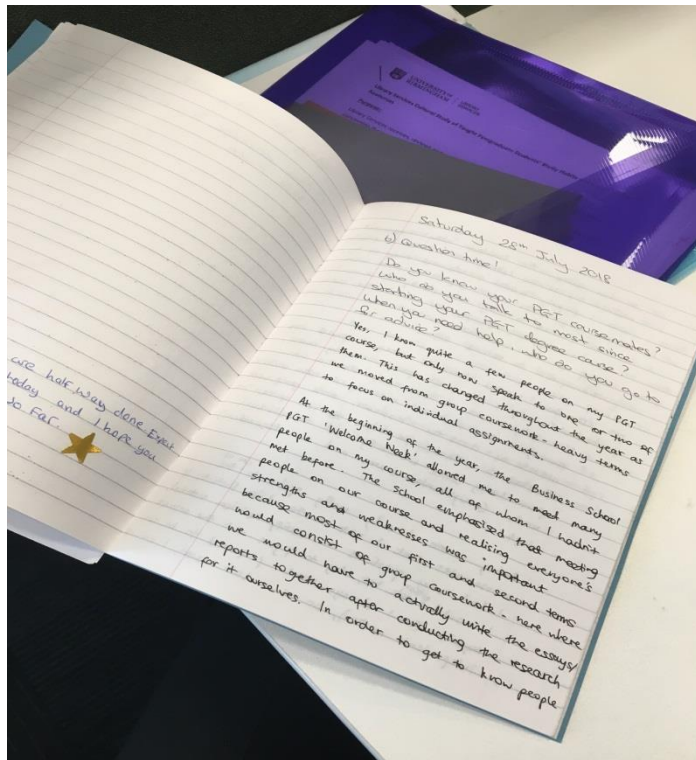 UNIVERSITY OF
BIRMINGHAM
LIBRARY
SERVICES
Library Services Cultural Study of Taught Postgraduate
Purpose:
are half way done
today and I hope you
so far.
Saturday 28th July 2018
6) Question time!
Do you know your PGT coursemates?
Who do you talk to most since
starting your PGT degree course?
When you need help, who do you go to
for advice?
Yes, I know quite a few people on my PGT
course, but only now speak to one or two of
them. This has changed throughout the year as
we moved from group coursework-heavy terms
to focus on individual assignments.
At the beginning of the year, the Business School
PGT 'Welcome Week' allowed me to meet many
people on my course, all of whom I hadn't
met before. The School emphasised that meeting
people on our course and realising everyone's
strengths and weaknesses was important
because most of our first and second terms
would consist of group coursework - here where
we would have to actually write the essays/
reports together after conducting the research
for it ourselves. In order to get to know people